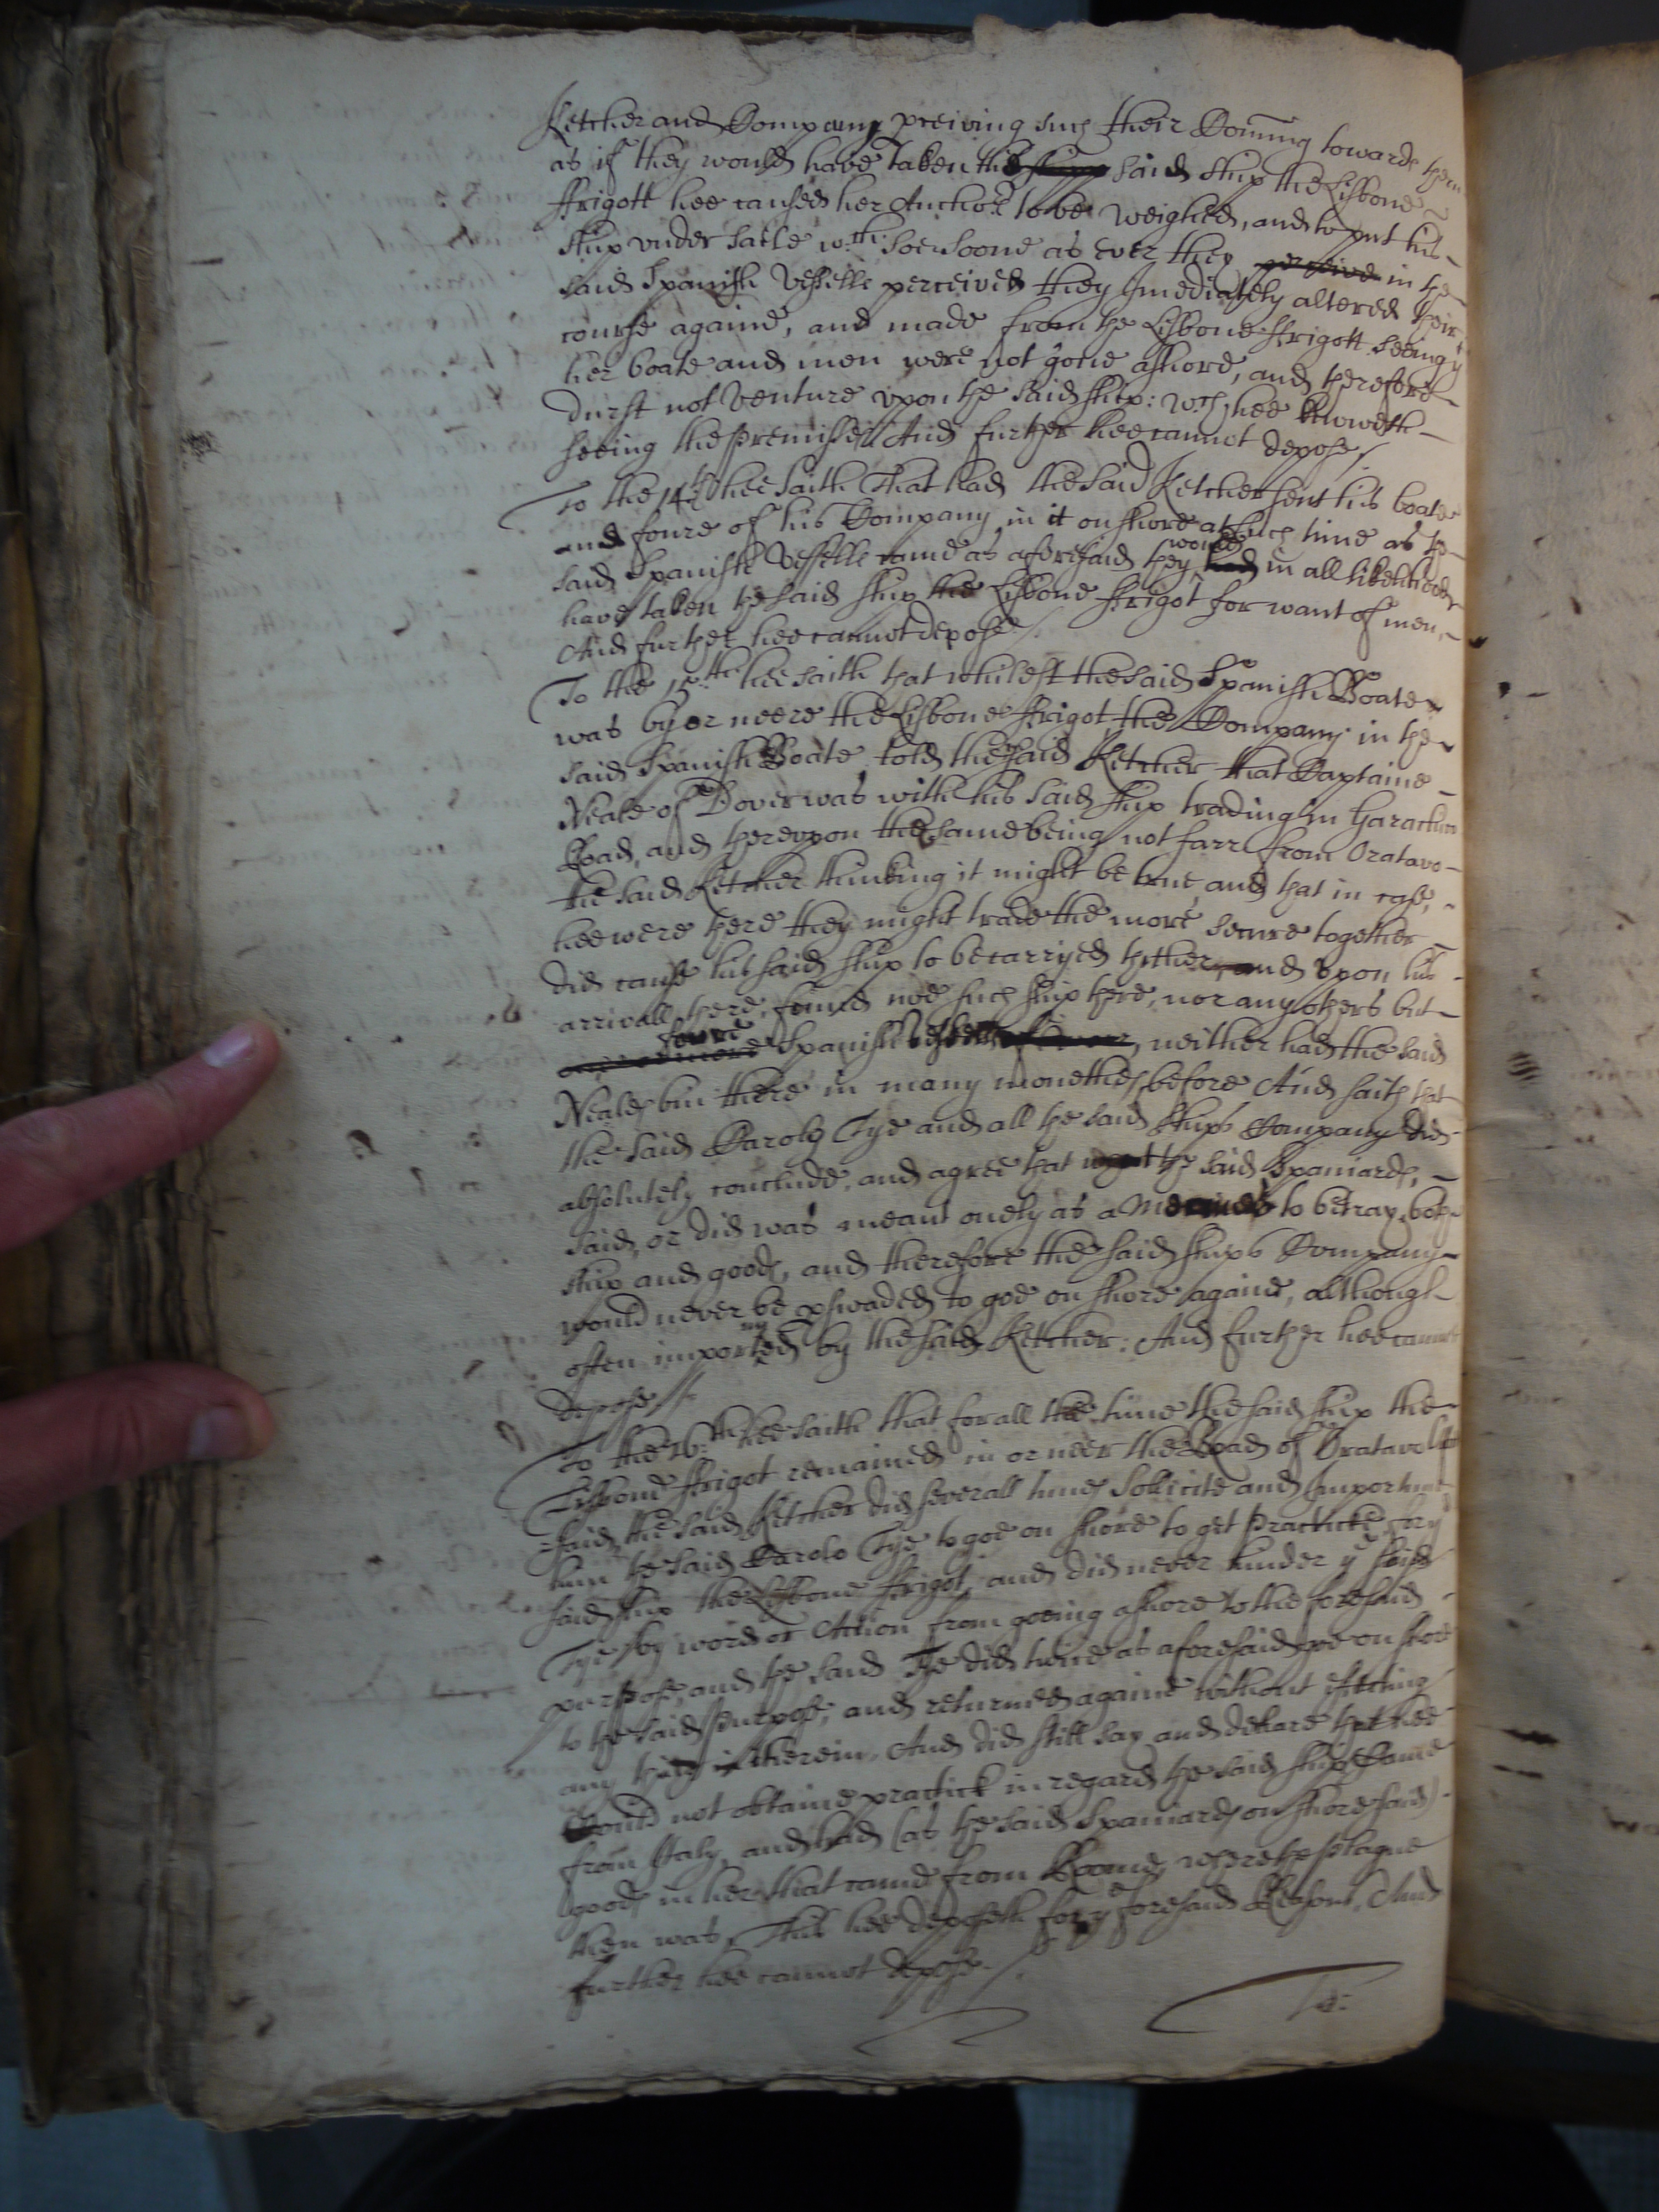 Ketcher and Company pceiving such their Coming towards them
as if they would have taken the said ship the Lisbone
ffrigott hee caused her Anchor to be weighed, and to put his
ship under saile wch: soe soone as ever they perceive in the
said Spanish Vessell perceived they Imediately altered their
course againe, and made from the Lisbone ffrigott seeing yt
her boate and men were not gone ashore, and therefore
durst not venture upon the said ship: wch hee knoweth
seeing the premisses And further hee cannot depose/
To the 14th hee saith That had the said Ketcher sent his boate
and foure of his Company in it on shore at such time as the
said Spanish Vessell came as aforesaid they would had in all likelihood
have taken the said ship the Lisbone ffrigot for want of men,
And further hee cannot depose./
To the 15th hee saith that whilest the said Spanish Boate
was by or neere the Lisbone ffrigot, the Company in the
said Spanish Boate told the said Ketcher that Captaine
Neale of Dover was with his said ship trading in Garachico
Road, and thereupon the same being not farr from Oratavo
the said Ketcher thinking it might be true, and that in case,
hee were there they might trade the more secure together
did cause his said ship to be carryed thither, and upon his
arrivall there, found noe such ship there, nor any others but
foure Spanish Vessells, neither had the said
Neale bin there in many monethes before And saith that
the said Carolo Tye and all the said ships Company did
absolutely conclude, and agree that wt the said Spaniards,
said, or did was meant onely as a to betray both
ship and goods, and therefore the said ships Company
would never be pswaded to goe on shore againe, although
often importuned by the said Ketcher: And further hee cannot
depose//
To the 16th hee saith that for all the time the said ship the
Lisbone ffrigot remained in or neer the Road of Oratavo
said, the said Ketcher did severall times Sollicite and Importune
him the said Carolo Tye to goe on shore to get Practicke for ye
said ship the Lisbone ffrigot, and did never hinder ye said
Tye by word or Action from goeing ashore to the foresaid
purpose, and the said Tye did twice as aforesaid goe on shore
to the said purpose, and returned againe without effecting
any thing therein, And did still say and declare that hee
Could not obtaine practick in regard the said ship Came
from Italy, and had (as the said Spaniards on shore said)
goods in her that came from Roome, where the plague
then was, This hee deposeth for ye foresaid Reasons, And
further hee cannot depose./
To: